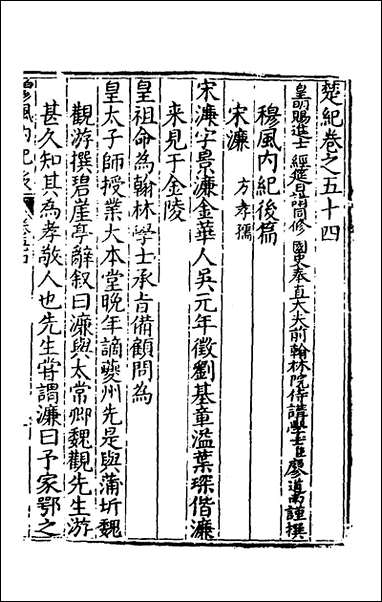 楚紀卷之五十四
皇明賜進士 經筵日講官同修 國史奉直大夫前翰林院侍講學士臣廖道南謹撰
穆風內紀後篇
宋濂 方孝孺
宋濂字景濂金華人吳元年徵劉基章溢葉琛偕濂
來見于金陵
皇祖命為翰林學士承旨備顧問為
皇太子師授業大本堂晚年謫夔州先是與蒲圻魏
觀游撰碧崖亭辭叙曰濂與太常卿魏觀先生游
甚久知其為孝敬人也先生嘗謂濂曰予家鄂之
穆風內紀後 卷五十四